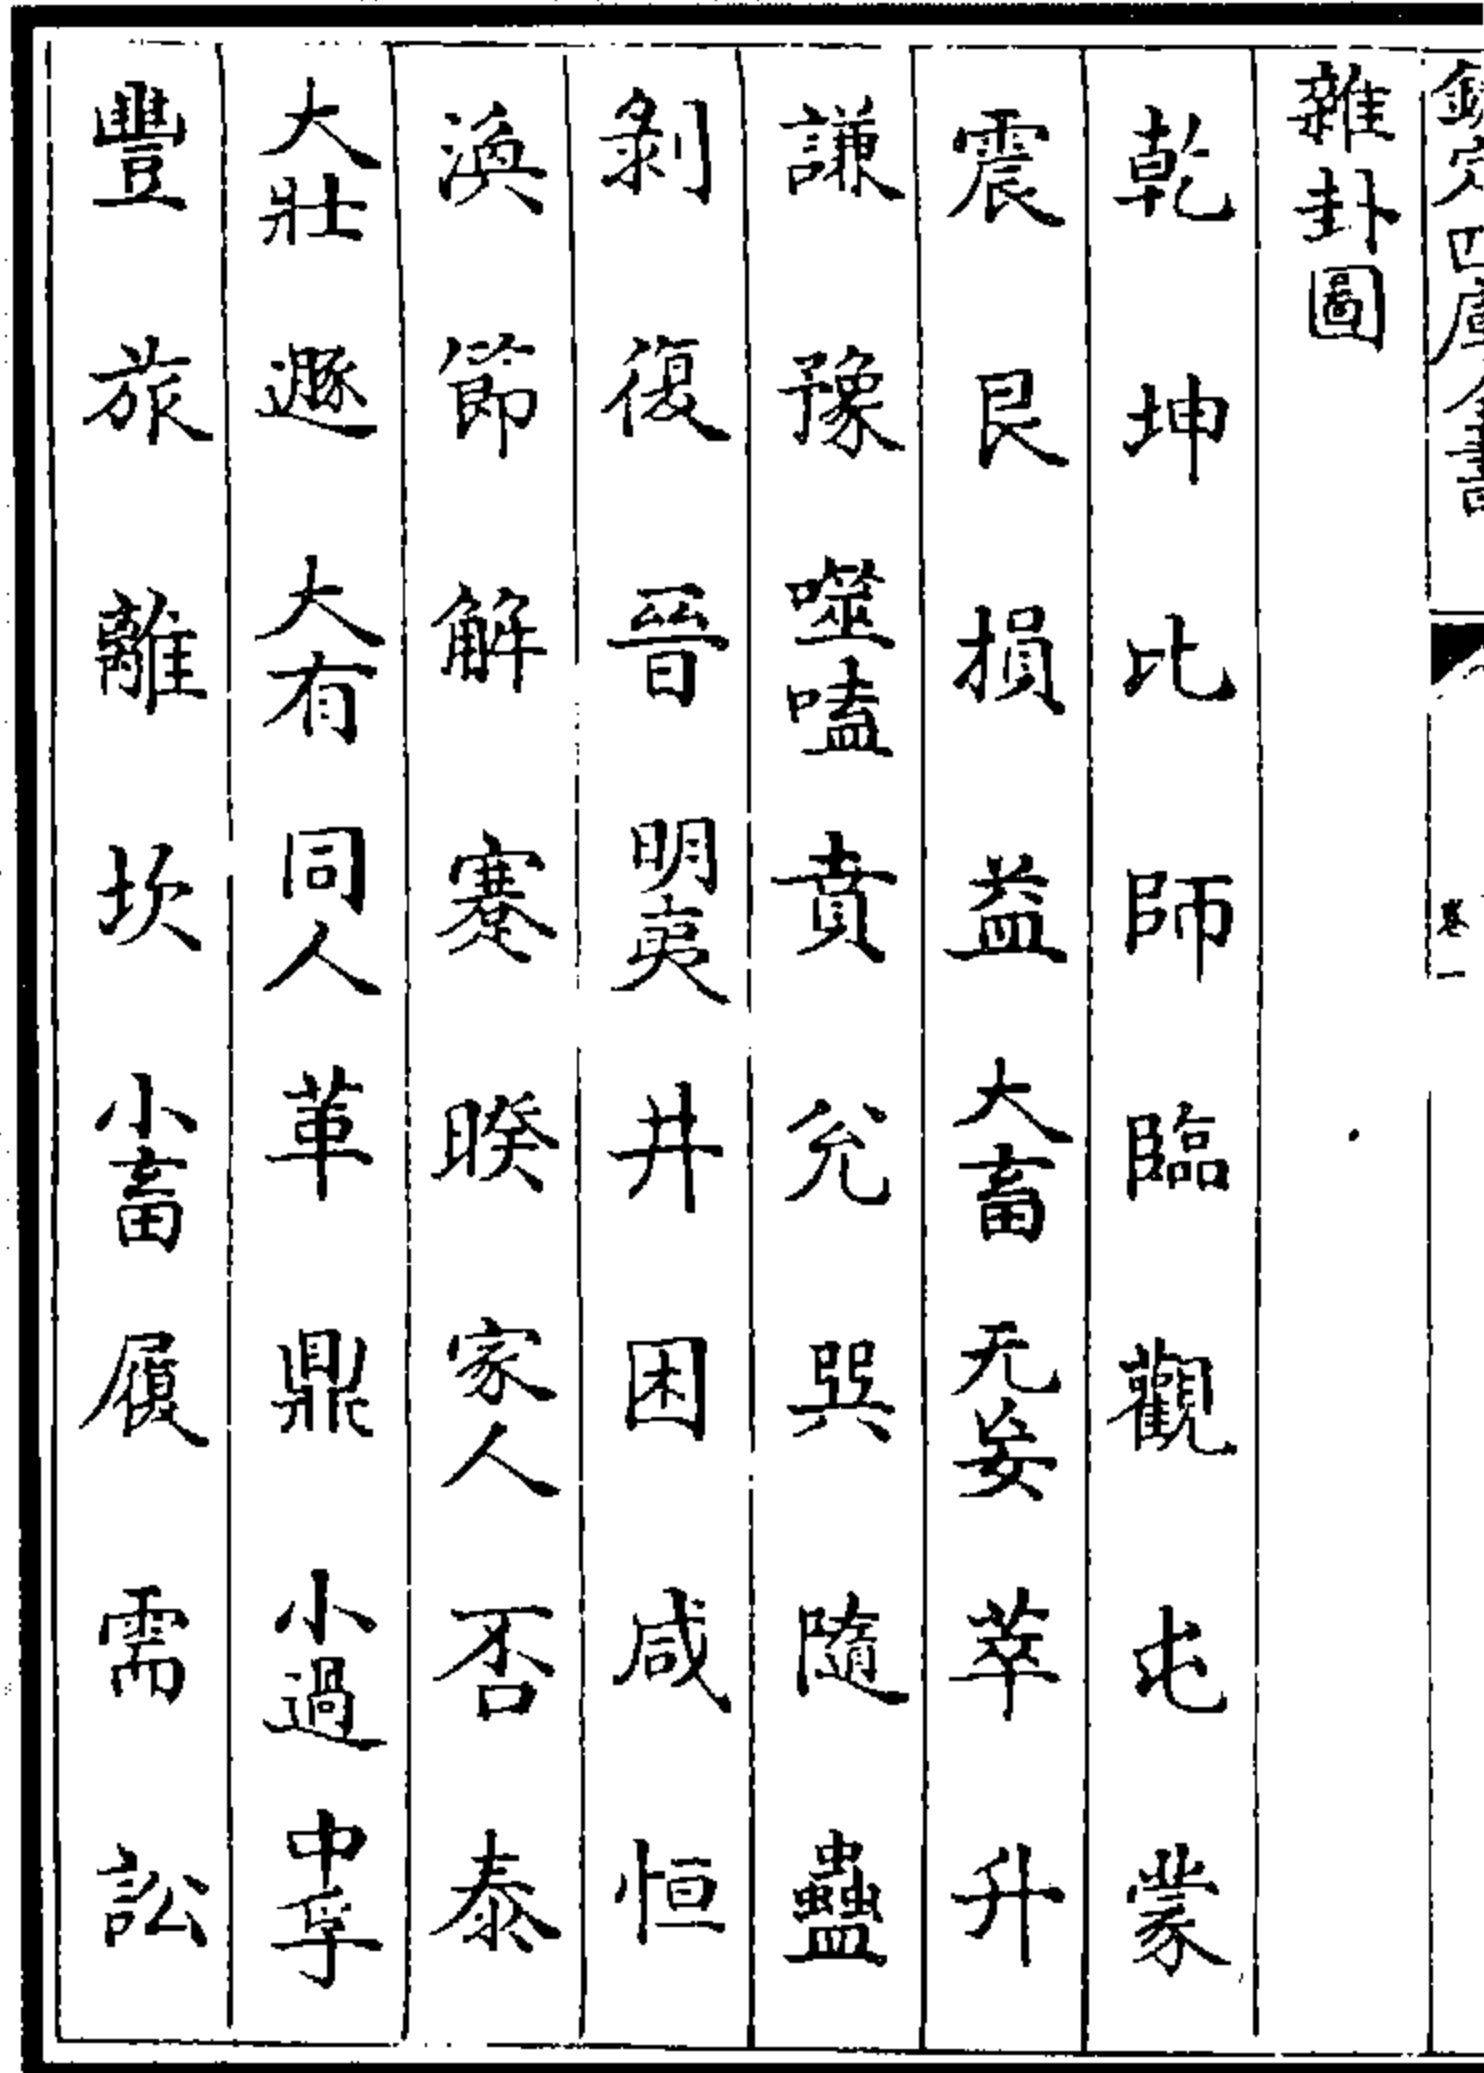 欽定四庫全書 卷一
雜卦圖
乾 坤 比 師 臨 觀 屯 蒙
震 艮 損 益 大畜 无妄 萃 升
謙 豫 噬嗑 賁 兊 巽 隨 蠱
剝 復 晉 明夷 井 困 咸 恒
渙 節 解 蹇 睽 家人 否 泰
大壯 遯 大有 同人 革 鼎 小過 中孚
豐 旅 離 坎 小畜 履 需 訟